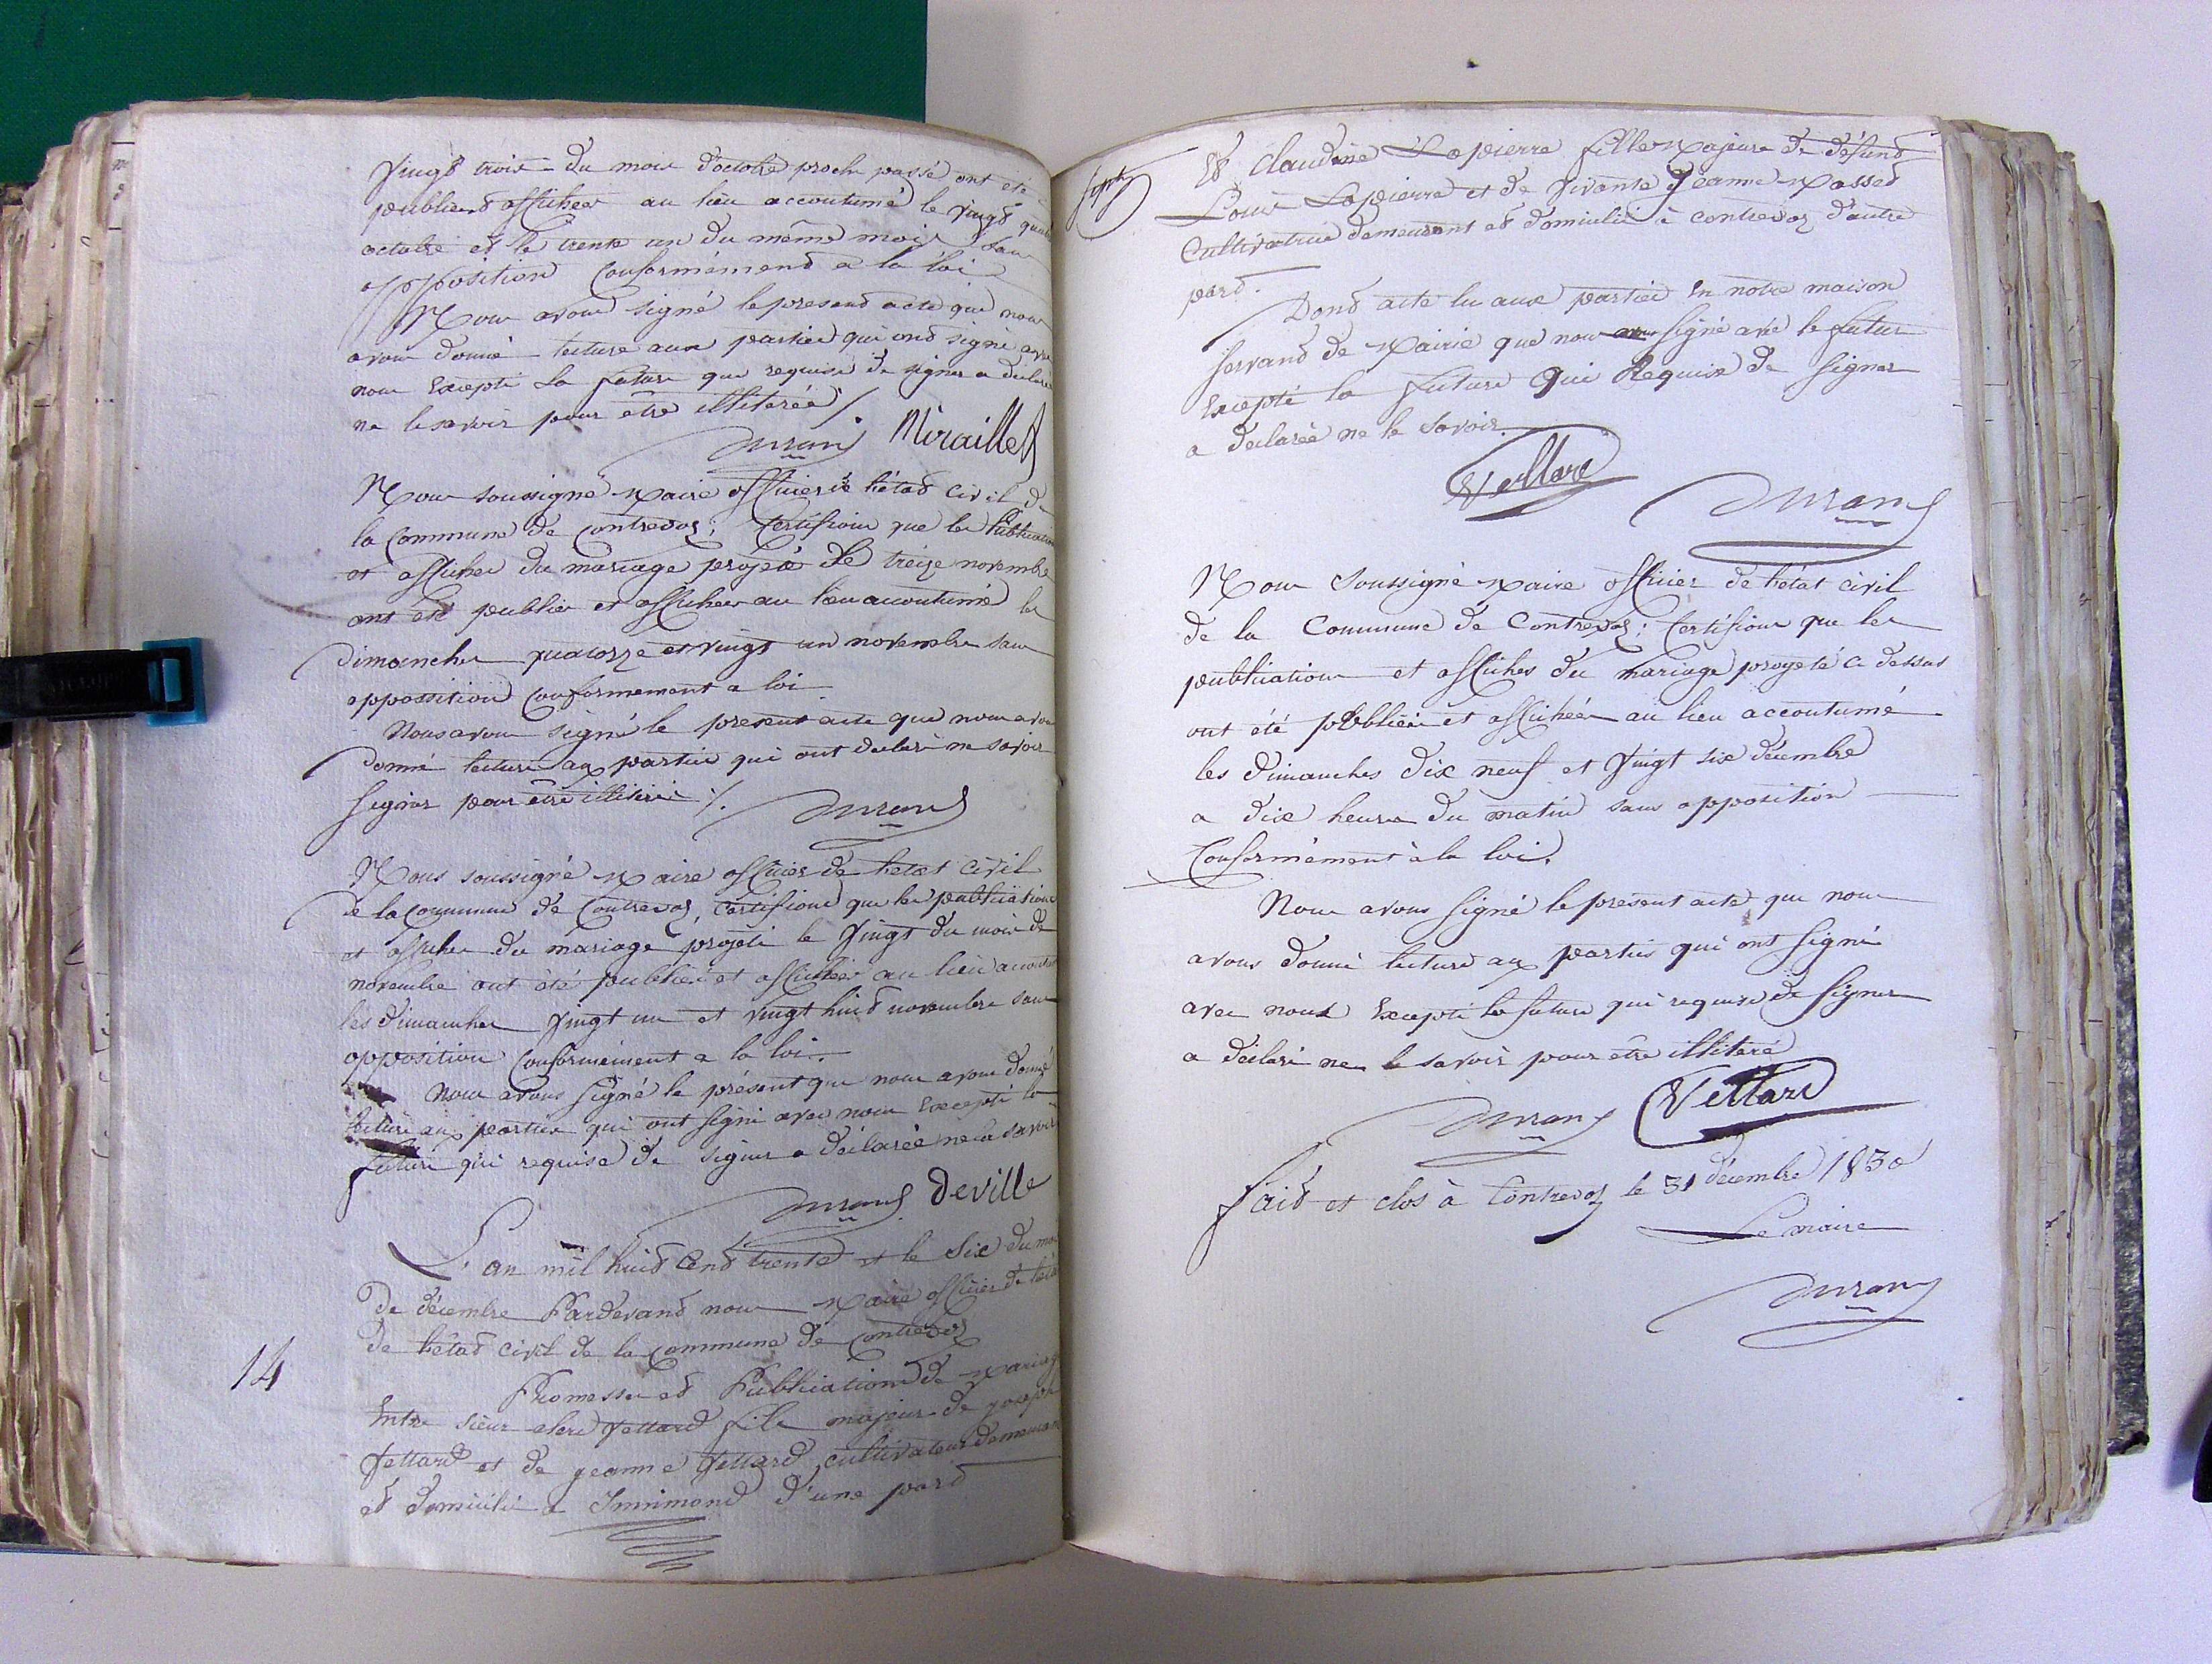 Vingt trois du mois d'octobre proche passé ont eté
publiees affichées au lieu accoutumé le vingt quatre
octobre et le trente un du même mois sans
opposition Conformémend a la loi
Nous avons signé le presend acte que nous
avons donné lecture aux parties qui ond signé avec
nous Excepté la future que requise de signer a déclaré
ne le savoir pour être illiterée ./.
Durand Miraillet
Nous soussigné Maire officier de l'étad civil de
la Commune de Contrevoz; Certifions que les Publications
et affiches du mariage projeté le treize novembre
ont été publiés et affichées au lieu accoutumé les
dimanches quatorze et vingt un novembre sans
oppossition Conformement a loi
Nous avons signé le present acte que nous avons
donné lecture aux parties qui ont declaré ne savoir
signer pour être illitéré ./. Durand
Nous soussigné Maire officier de l'etat civil
de la Commune de Contrevoz, Certifions que les publications
et affiches du mariage projeté le vingt du mois de
novembre ont été publiées et affichées au lieu accoutumé
les dimanches vingt un et vingt huid novembre sans
opposition Conformément a la loi.
Nous avons signé le présent que nous avons donné
lecture aux parties qui ont signé avec nous Excepté la
future qui requise de signer a déclarée ne le savoir
Durand Deville
L'an mil huid Cend trente et le Six du mois
De décembre Pardevand nous Maire officier de l'état
de l'étad civil de la Commune de Contrevoz
14
Promesse ed Publications de Mariage
Entre sieur Vettard fils majeur de joseph
Vettard et de jeanne Vettard, cultivateur demeurant
ed domicilié a Innimond d'une pard
Sept
Ed Claudine Lapierre fille Majeure de défund
Louis Lapierre et de vivante Jeanne Massed
Cultivatrice demeurant ed domicilié à contrevoz d'autre
pard.
Dond acte lu aux parties En notre maison
servand de Mairie que nous signé avec le futur
Excepté la future Qui Requise de signer
a déclarée ne le savoir
Vettard
Durand
Nous Soussigné Maire officier de l'état civil
de la Commune de Contrevoz; Certifions que les
publications et affiches du mariage projeté ci dessus
ont été publiées et affichées au lieu accoutumé
les dimanches dix neuf et vingt six décembre
a dix heures du matin sans opposition
Conformément à la loi.
Nous avons signé le present acte que nous
avons donné lecture aux parties qui ont signé
avec nous Excepté la future qui requise de signer
a déclaré ne le savoir pour être illiteré
Durand Vettard
Faid et clos à Contrevoz le 31 décembre 1830
Le maire
Durand